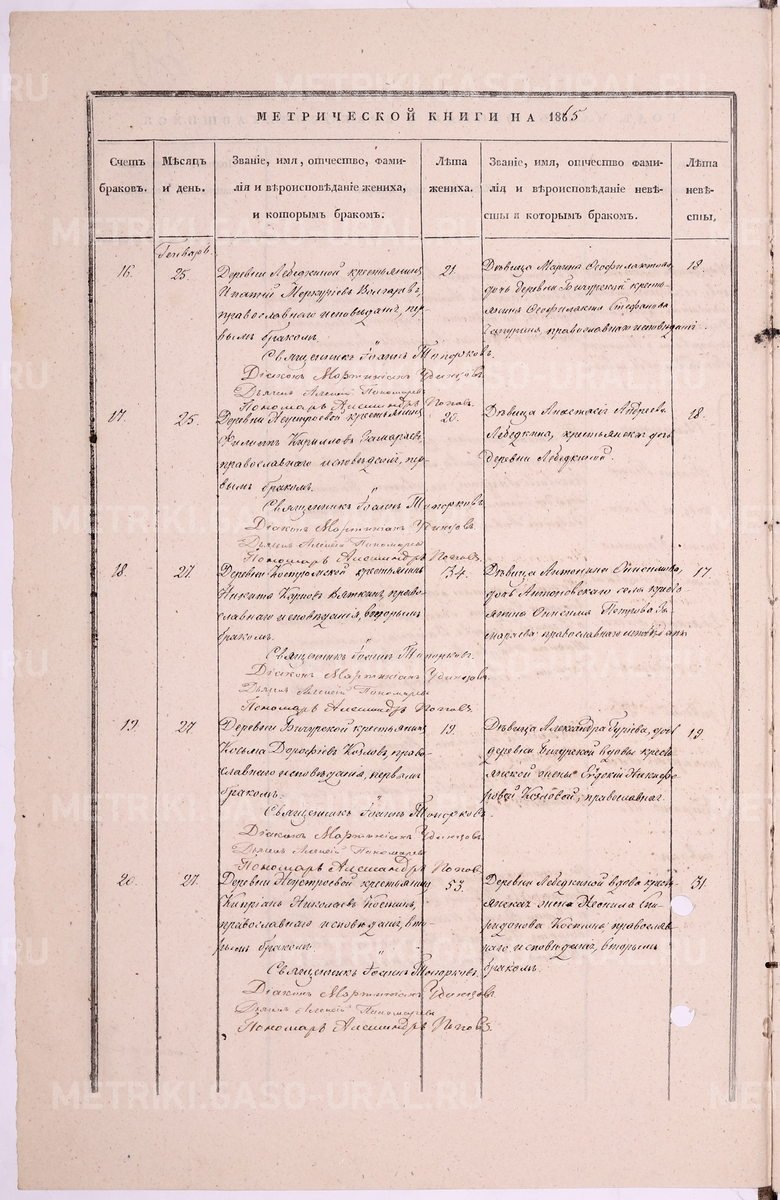 МЕТРИЧЕСКОЙ КНИГИ НА 1865
Счетъ браковъ.
Мѣсяцъ и день.
Званіе, имя, отчество, фами-
лія и вѣроисповѣданіе жениха,
и которымъ бракомъ.
Лѣта жениха.
Званіе, имя, отчество фами-
лія и вѣроисповѣданіе невѣ-
сты и которымъ бракомъ.
Лѣта невѣ-
сты,
Генварь
16.
25.
Деревни Лебедкиной крестьянинъ
Ипатій Меркуріевъ
православнаго исповѣданія, пер-
вымъ бракомъ
Священникъ Іоаннъ Топорковъ.
Діаконъ Мартиніанъ Удинцовъ.
Дьячекъ Алексій Пономаревъ
Пономарь Александръ Поповъ.
21.
Дѣвица Марина Ѳеофилактова
дочь деревни Бичурской кресть-
янина Ѳеофилакта Стефанова
православнаго исповѣданія
18.
17.
25.
Деревни Неустроевой крестьянинъ
Филиппъ Кирилловъ
православнаго исповѣданія, пер-
вымъ бракомъ.
Священникъ Іоаннъ Топорковъ
Діаконъ Мартиніанъ Удинцовъ.
Дьячекъ Алексій Пономаревъ
Пономарь Александръ Поповъ.
20.
Дѣвица Анастасія Андреева
Лебедкина, крестьянская дочь
деревни Лебедкиной.
18.
18.
27.
Деревни Костромской крестьянинъ
Никита Карповъ Вяткинъ, право-
славнаго исповѣданія, вторымъ
бракомъ.
Священникъ Іоаннъ Топорковъ.
Діаконъ Мартиніанъ Удинцовъ.
Дьячекъ Алексій Пономаревъ
Пономарь Александръ Поповъ.
34.
Дѣвица Антонина Онисимова,
дочь Антоновскаго села кресть-
янина Онисима Петрова
православнаго исповѣданія
17.
19.
27
Деревни Бичурской крестьянинъ
Косма Дороѳѣевъ Козловъ, право-
славнаго исповѣданія, первымъ
бракомъ.
Священникъ Іоаннъ Топорковъ
Діаконъ Мартиніанъ Удинцовъ.
Дьячекъ Алексій Пономаревъ
Пономарь Александръ Поповъ.
19.
Дѣвица Александра Гуріева, дочь
деревни Бичурской вдовы кресть-
янской жены Евдокіи Никифо-
ровой Козловой, православнаг.
19.
20.
27.
Деревни Неустроевой крестьянинъ
Кипріанъ Николаевъ Костинъ,
православнаго исповѣданія, вто-
рымъ бракомъ
Священникъ Іоаннъ Топорковъ.
Діаконъ Мартиніанъ Удинцовъ
Дьячекъ Алексій Пономаревъ
Пономарь Александръ Поповъ.
53.
Деревни Лебедкиной вдова кресть-
янская жена Неонила Спи-
ридонова Костина православ-
наго исповѣданія, вторымъ
бракомъ.
31.
METRIKI.GASO-URAL.RU